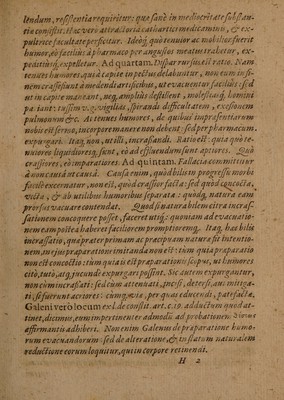 lendum, resistentia requiritur: que sanè in mediocritate substan-
tia consistit: ita & vero attractoria cathartici medicamini, & ex-
pultrice facultate perficitur. Ideoq; quo tenuior ac mobilior fuerit
humor, eò facilius à pharmaco per angustos meatus trahetur, ex-
peditius q; expelletur. Ad quartam. Dispar rursus est ratio. Nam
tenues humores, qui à capite in pectus delabuntur, non eum in fi-
nem crassesiunt à medendi artificibus, ut evacuentur facilius: sed
ut in capite maneant, neq; ampliùs destillent, molestiasq; homini
pa iant: tussim vz. vigilias, spirandi difficultatem, exesionem
pulmonum &c. At tenues humores, de quibus in præsentiarum
nobis est sermo, in corpore manere non debent: sed per pharmacum
expurgari. Itaq; non, ut illi, incrassandi. Ratio est: quia quò te-
nuiores liquidioresq; sunt, eò ad effluendum sunt aptiores. Quò
crassiores, eò imparatiores. Ad quintam. Fallacia committitur
à non causa ut causa. Causa enim, quòd bilis in progressu morbi
facilè excernatur, non est, quòd crassior facta: sed quòd concocta,
victa, & ab utilibus humoribus separata: quodq; natura eam
prorsus evacuare contendat. Quod si naturabilem citra incras-
sationem concoquere posset, faceret utiq;: quoniam ad evacuatio-
nem eam postea haberet faciliorem promptioremq;. Itaq; hæc bilis
incrassatio, quæ præter primam ac præcipuam natura fit intentio-
nem, in præparatione imitanda non est: tùm quia præparatio
non est concoctio: tùm quia is est præparationis scopus, ut humores
citò, tutò, atq; jucundè expurgari possint. Sic autem expurgantur,
non cùm incrassati: sed cùm attenuati, incisi, detersi, aut mitiga-
ti, si fuerunt acriores: cumq; viæ, per quas educendi, patefactæ.
Galeni verò locum ex l. de constit. art. c. 19. ad auctum quod at-
tinet, dicimus, eum impertinenter admodum ad probationem
affirmantis adhiberi. Non enim Galenus de præparatione humo-
rum evacuandorum: sed de alteratione, & in statum naturalem
reductione eorum loquitur, qui in corpore retinendi.
H 2